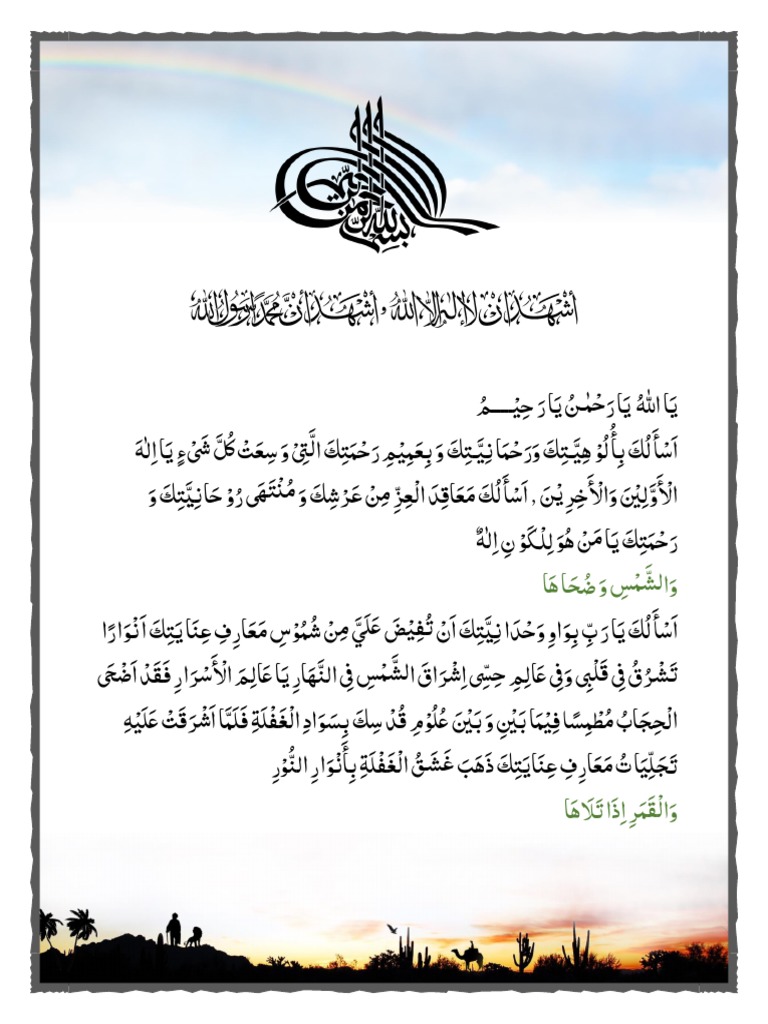 بسم الله الرحمن الرحيم
أشهد ان لا إله إلا الله و أشهد أن محمدا رسول الله
يَا اللهُ يَا رَحْمٰنُ يَا رَحِيْـــمُ
اَسْأَلُكَ بِأُلُوْهِيَّتِكَ وَرَحْمَانِيَّتِكَ وَبِعَمِيْمِ رَحْمَتِكَ الَّتِيْ وَسِعَتْ كُلَّ شَيْءٍ يَا اِلٰهَ
الْأَوَّلِيْنَ وَالْأَخِرِيْنَ , اَسْأَلُكَ مَعَاقِدَ الْعِزِّ مِنْ عَرْشِكَ وَمُنْتَهَى رُوْحَانِيَّتِكَ وَ
رَحْمَتِكَ يَا مَنْ هُوَ لِلْكَوْنِ اِلٰهٌ
وَالشَّمْسِ وَضُحَاهَا
اَسْأَلُكَ يَا رَبِّ بِوَاوِ وَحْدَانِيَّتِكَ اَنْ تُفِيْضَ عَلَيَّ مِنْ شُمُوْسِ مَعَارِفِ عِنَايَتِكَ اَنْوَارًا
تَشْرُقُ فِى قَلْبِى وَفِى عَالِمِ حِسِّى اِشْرَاقَ الشَّمْسِ فِى النَّهَارِ يَا عَالِمَ الْأَسْرَارِ فَقَدْ اَضْحَى
الْحِجَابُ مُطْمِسًا فِيْمَا بَيْنِ وَبَيْنَ عُلُوْمِ قُدْسِكَ بِسَوَادِ الْغَفْلَةِ فَلَمَّا اَشْرَقَتْ عَلَيْهِ
تَجَلِّيَاتُ مَعَارِفِ عِنَايَتِكَ ذَهَبَ غَشَقُ الْغَفْلَةِ بِأَنْوَارِ النُّوْرِ
وَالْقَمَرِ اِذَا تَلَاهَا